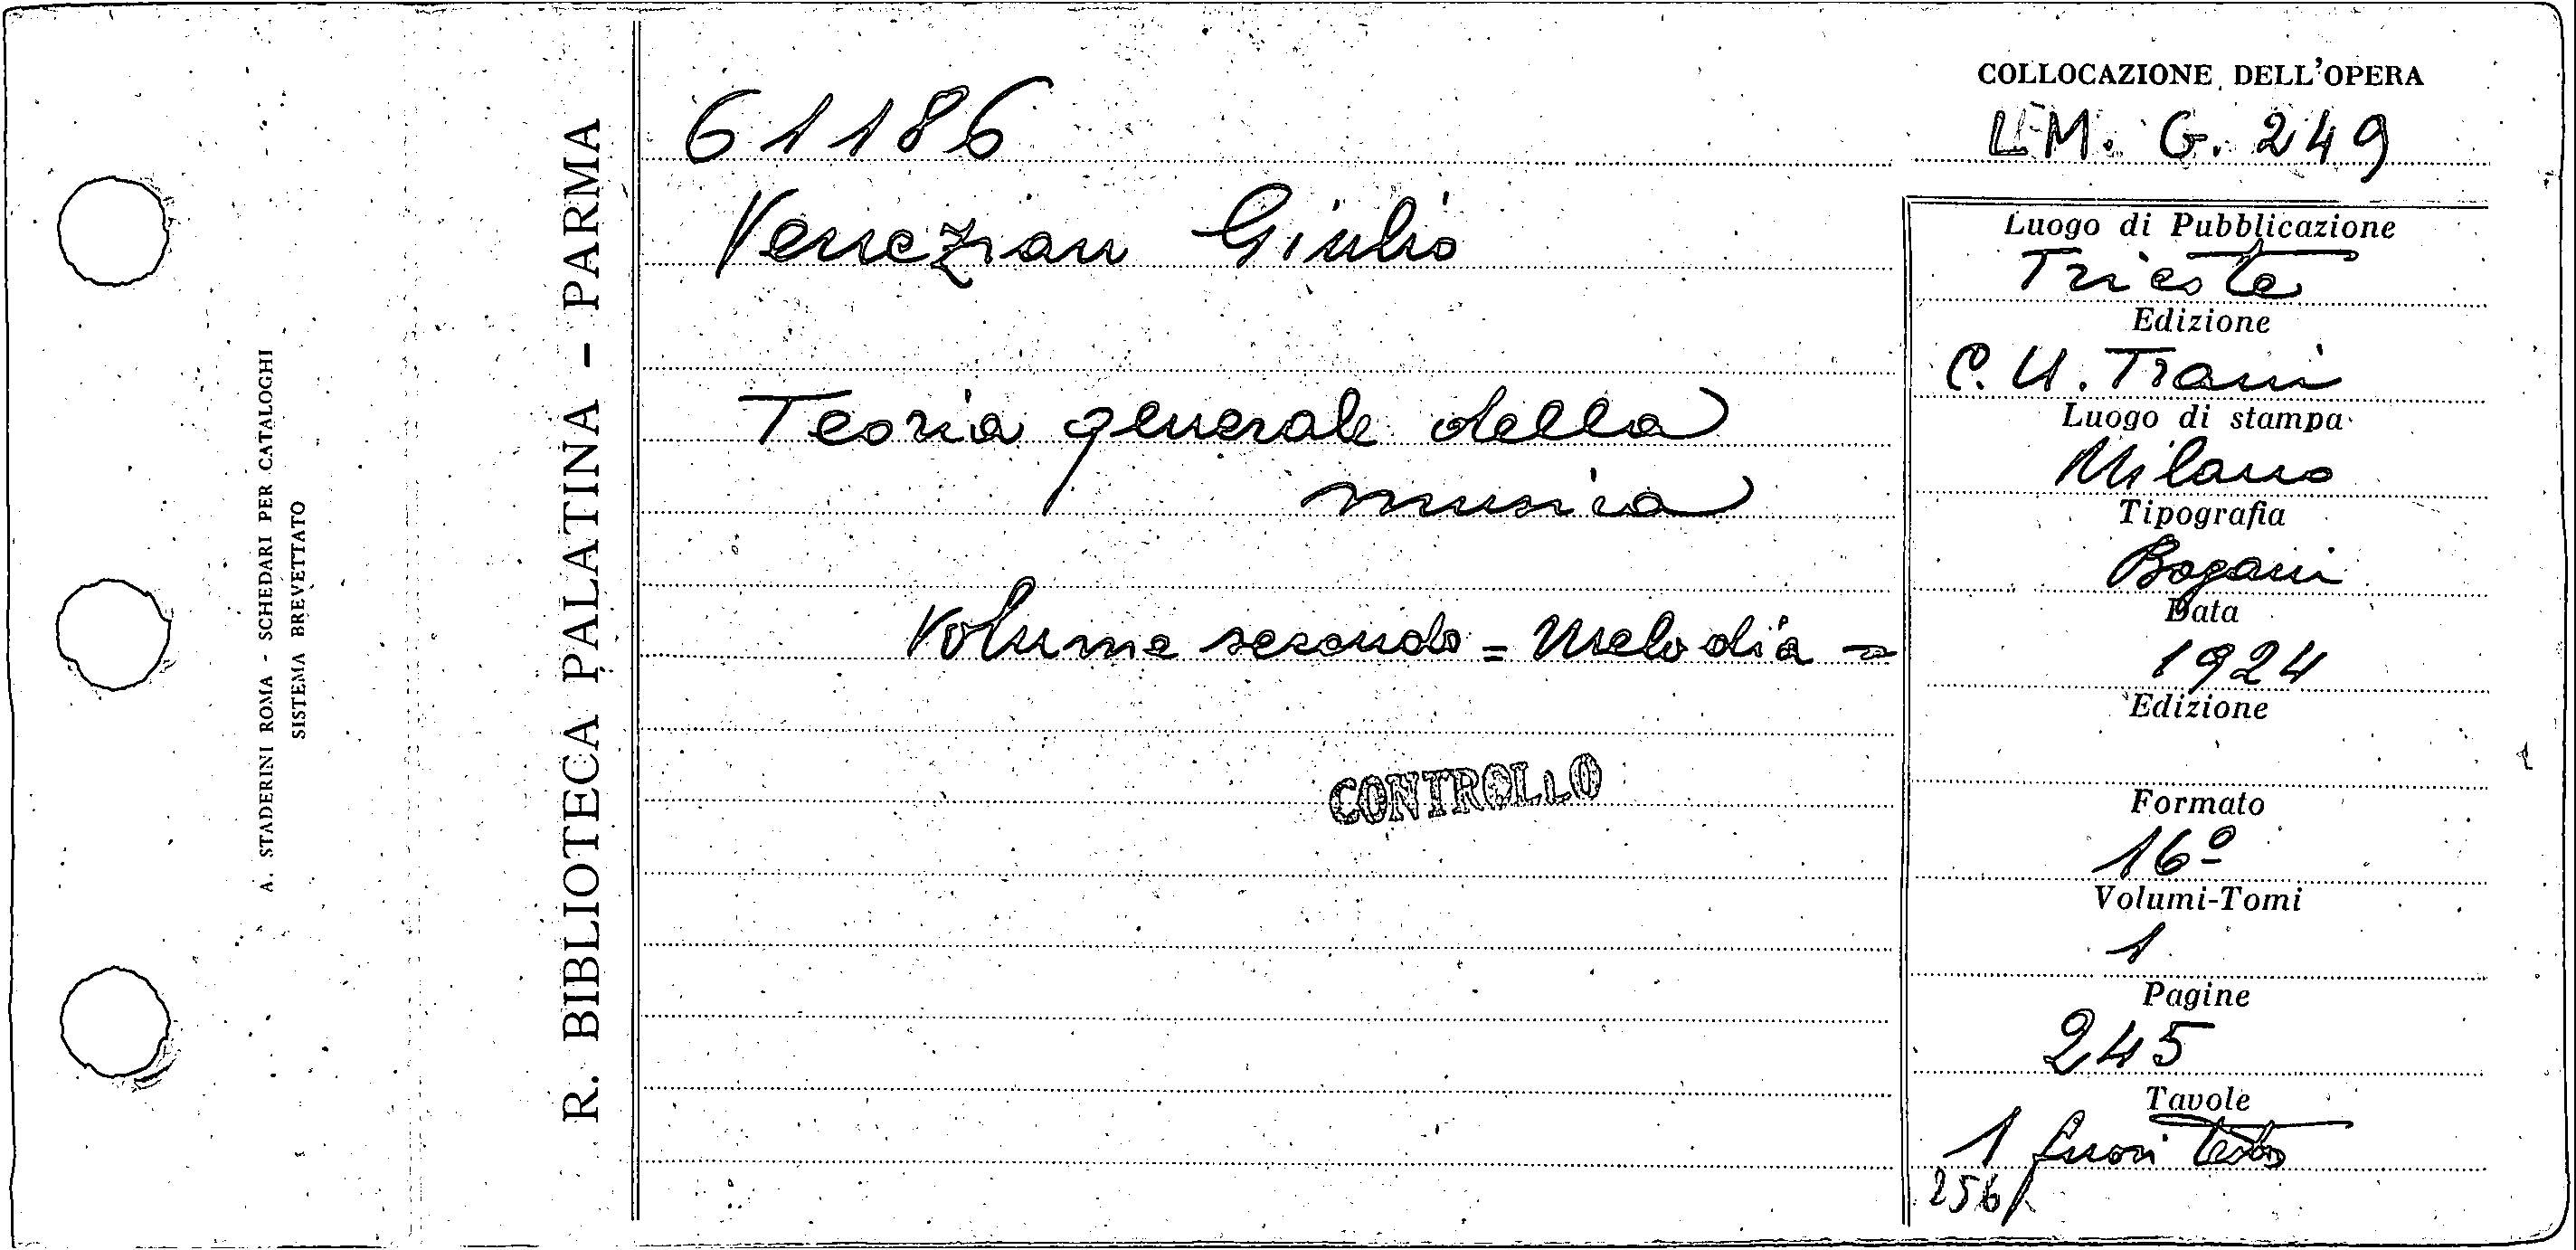 A. STADERINI ROMA - SCHEDARI PER CATALOGHI
SISTEMA BREVETTATO
R. BIBLIOTECA PALATINA - PARMA
61186
Venezian Giulio
Teoria generale della
musica
Volume secondo = Melodia =
CONTROLLO
COLLOCAZIONE DELL'OPERA
M. G. 249
Luogo di Pubblicazione
Trieste
Edizione
C. U. Trani
Luogo di stampa
Milano
Tipografia
Bogani
Data
1924
Edizione
Formato
16º
Volumi-Tomi
1
Pagine
245
Tavole
1 fuori testo
256